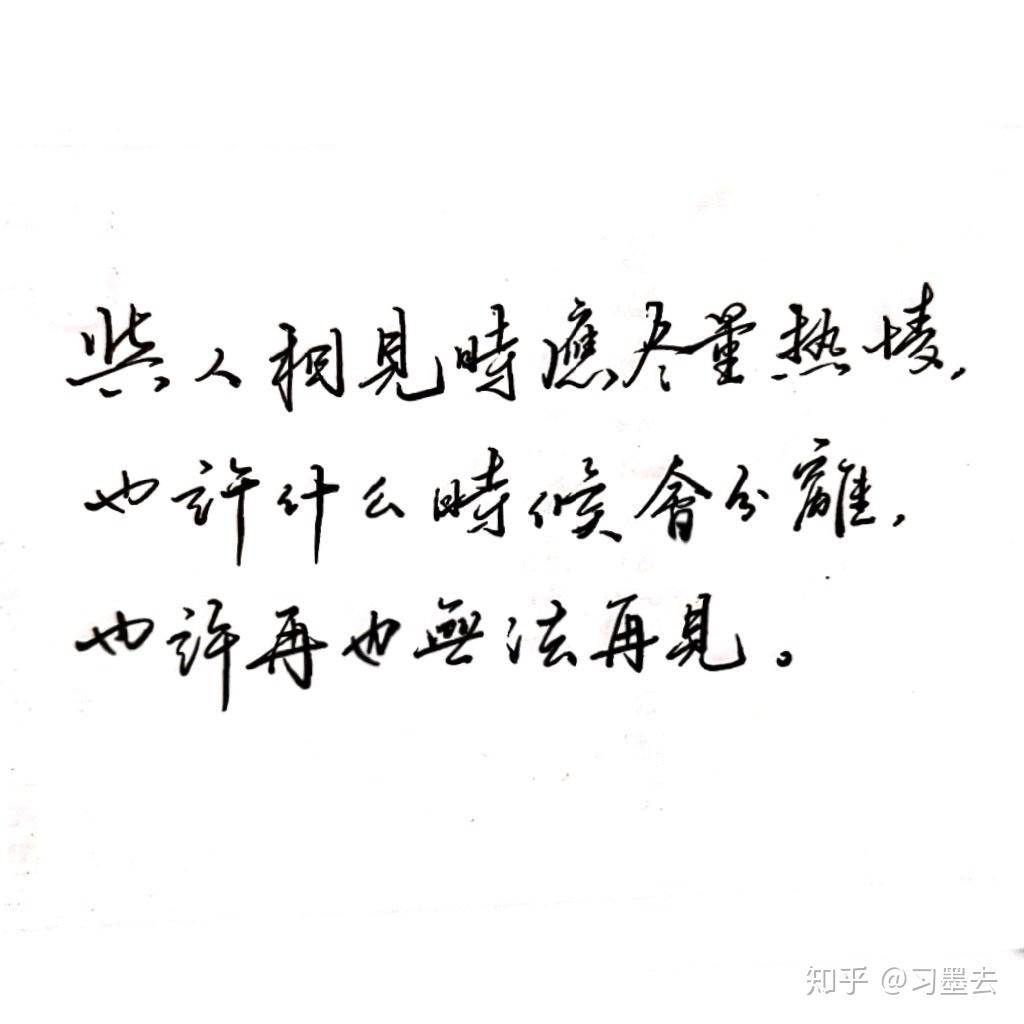 與人相見時應尽量热情，
也許什么時候會分離，
也許再也無法再見。
知乎 @习墨去